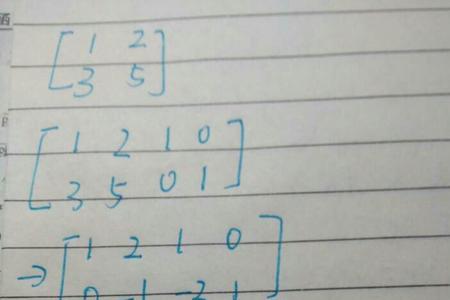 1 2
3 5
1 2 1 0
3 5 0 1
→ 1 2 1 0
0 -1 -3 1